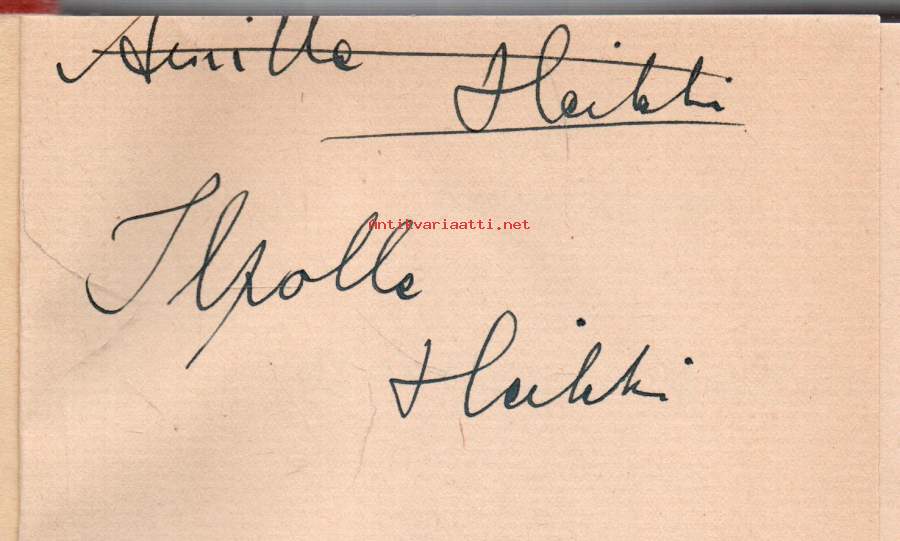 Heikki
antikvariaatti.net
Ilpolle
Heikki